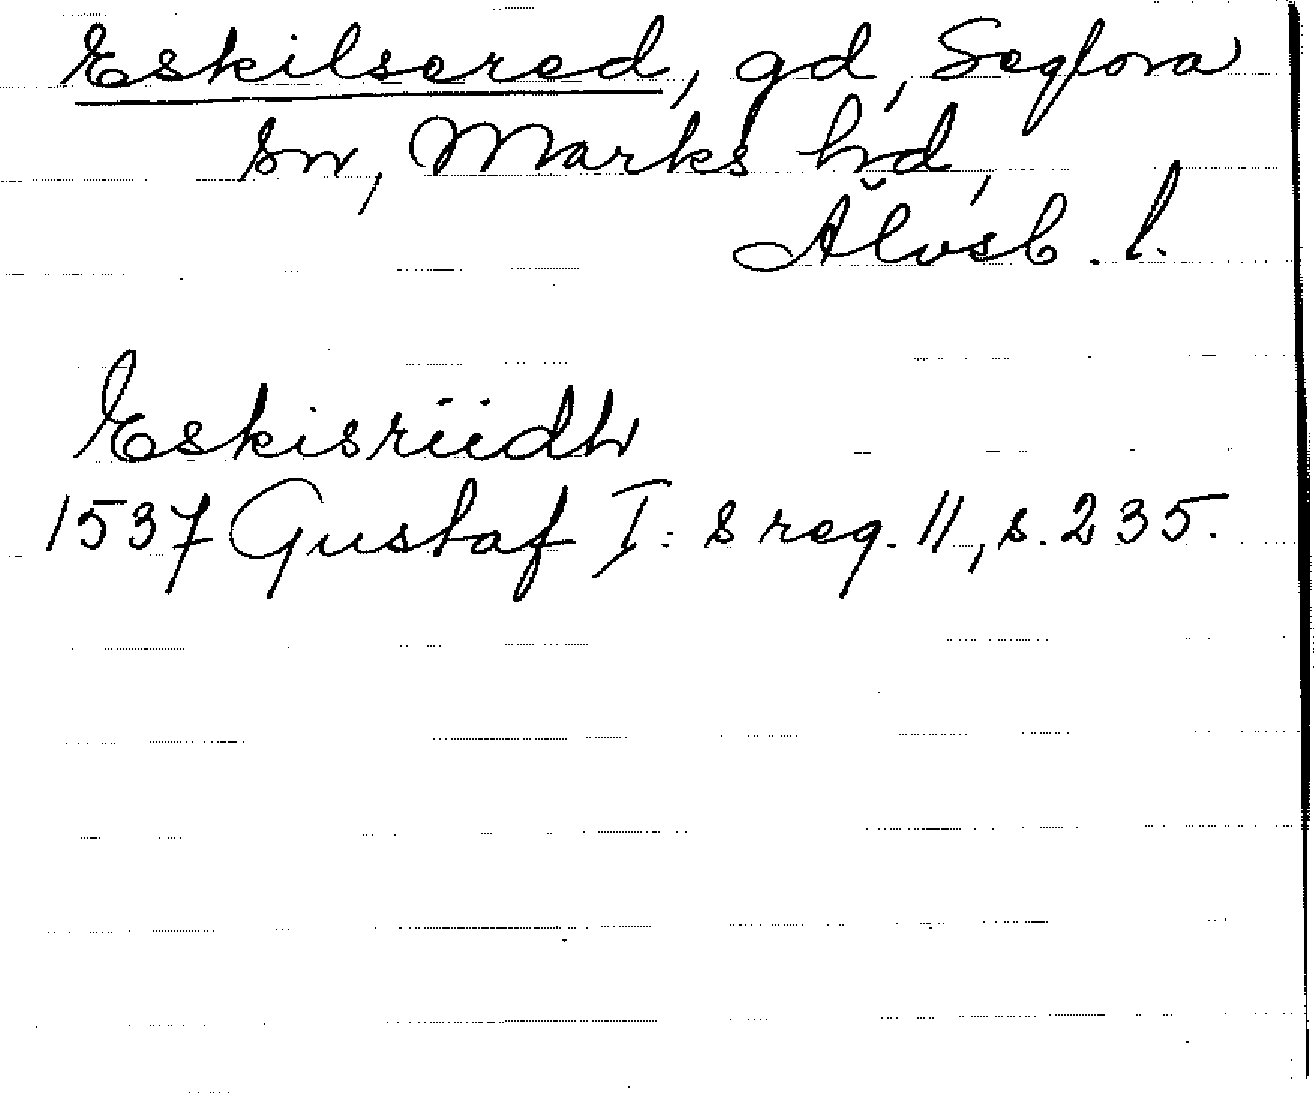 Eskilsered, gd, Seglora
sn, Marks hd,
Älvsb. l.
Eskisriidh
1537 Gustaf I:s reg. 11, s. 235.